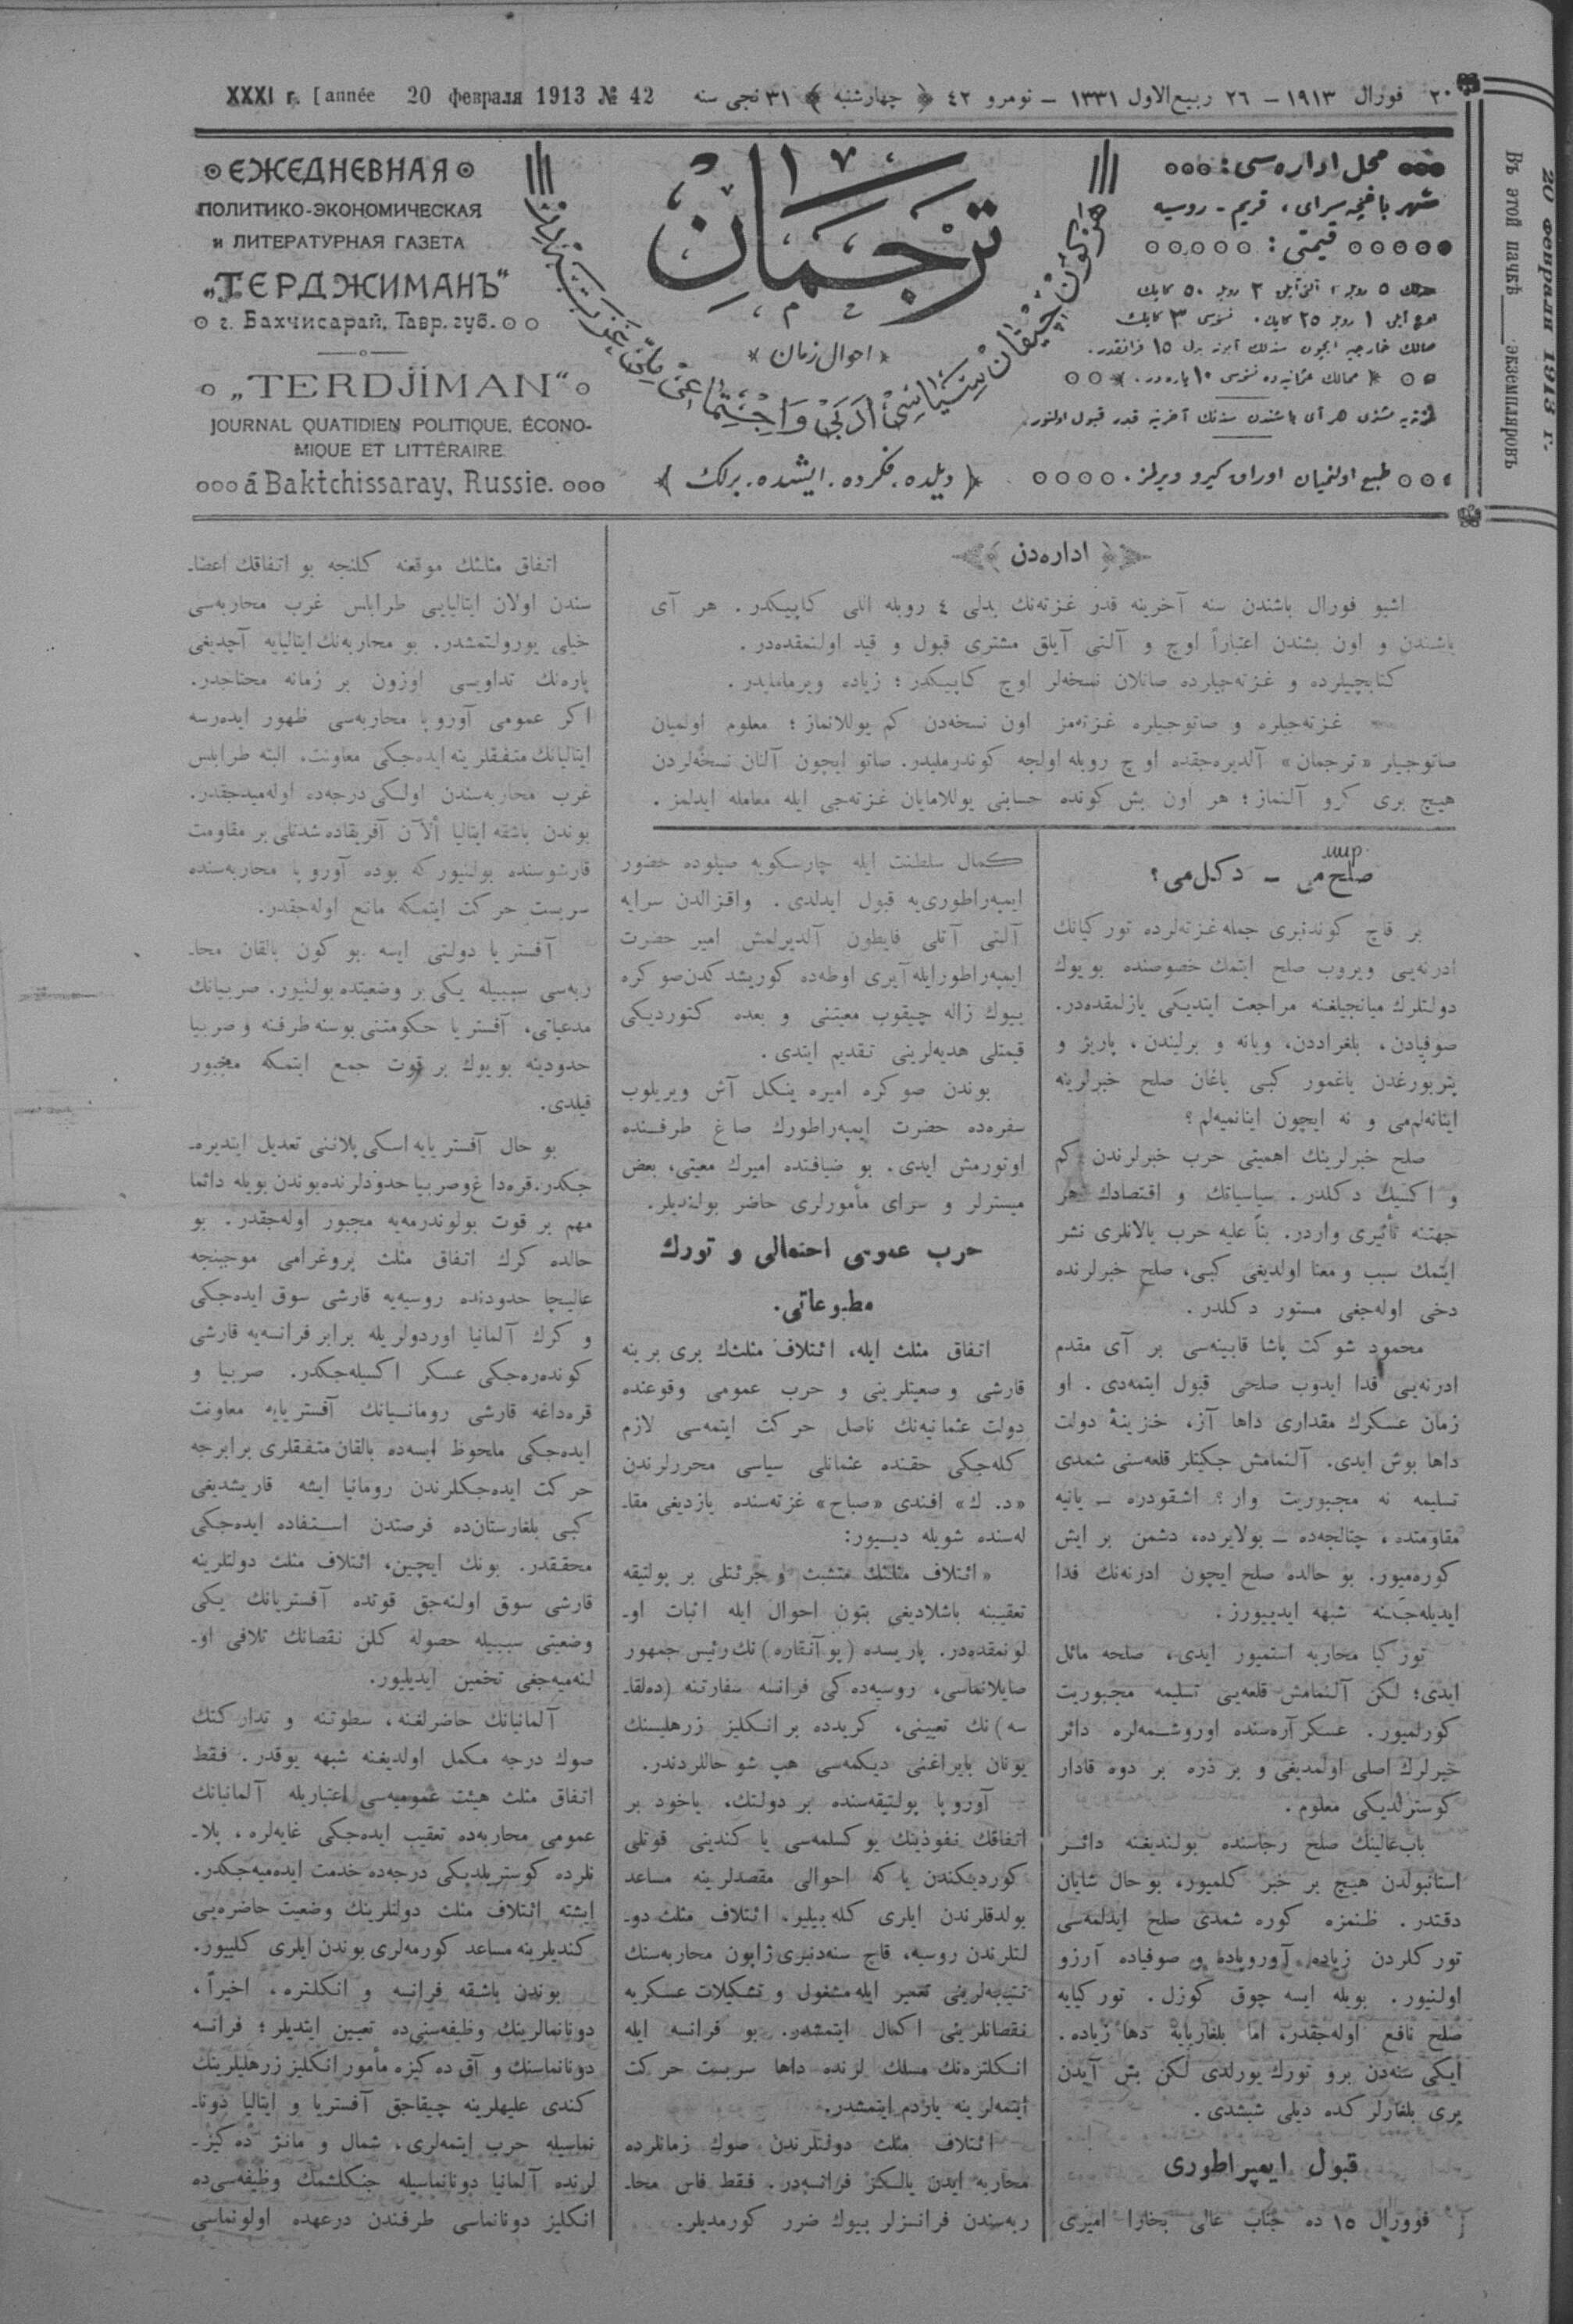 XXXI г. [année 20 февраля 1913 № 42
٢٠ فورال ١٩١٣ – ٢٦ ربيع‌الاول ١٣٣١ – نومرو ٤٢ ﴿ چهارشنبه ﴾ ٣١ نجى سنه
ЕЖЕДНЕВНАЯ
ПОЛИТИКО-ЭКОНОМИЧЕСКАЯ
и ЛИТЕРАТУРНАЯ ГАЗЕТА
„ТЕРДЖИМАНЪ“
г. Бахчисарай, Тавр. губ.
„TERDJIMAN“
JOURNAL QUATIDIEN POLITIQUE, ÉCONO-
MIQUE ET LITTÉRAIRE
á Baktchissaray, Russie.
ترجمان
احوال زمان
﴿ ديلده. فكرده. ايشده. برلك ﴾
محل اداره‌سى:
شهر باغچه‌سراى، قريم - روسيه
قيمتى:
طبع اولنميان اوراق كيرو ويرلمز.
20 февраля 1913 г.
Въ этой пачкѣ ____ экземпляровъ
اداره‌دن
اشبو فورال باشندن سنه آخرينه قدر غزته‌نك بدلى ٤ روبله اللى كاپيكدر. هر آى
باشندن و اون بشندن اعتباراً اوچ و آلتى آيلق مشترى قبول و قيد اولنمقده‌در.
كتابچيلرده و غزته‌جيلرده صاتلان نسخه‌لر اوچ كاپيكدر؛ زياده ويرماملیدر.
غزته‌جيلره و صاتوجيلره غزته‌مز اون نسخه‌دن كم يوللانماز؛ معلوم اولميان
صاتوجيلر «ترجمان» آلديره‌جقده اوچ روبله اولجه كوندرمليدر. صاتو ايچون آلنان نسخه‌لردن
هيچ برى كرو آلنماز؛ هر اون بش كونده حسابنى يوللامايان غزته‌جى ايله معامله ايدلمز.
мир.
صلح‌مى – دكل‌مى؟
بر قاچ كوندنبرى جمله غزته‌لرده توركيانك
ادرنه‌يى ويروب صلح ايتمك خصوصنده بويوك
دولتلرك ميانجيلغنه مراجعت ايتديكى يازلمقده‌در.
صوفيادن، بلغراددن، ويانه و برليندن، پاريژ و
پتربورغدن ياغمور كبى ياغان صلح خبرلرينه
اينانه‌لم‌مى و نه ايچون اينانميه‌لم؟
صلح خبرلرينك اهميتى حرب خبرلرندن كم
و اكسيك دكلدر. سياسياتك و اقتصادك هر
جهتنه تأثيرى واردر. بناً عليه حرب يالانلرى نشر
ايتمك سبب و معنا اولديغى كبى، صلح خبرلرنده
دخى اوله‌جغى مستور دكلدر.
محمود شوكت پاشا قابينه‌سى بر آى مقدم
ادرنه‌يى فدا ايدوب صلحى قبول ايتمه‌دى. او
زمان عسكرك مقدارى داها آز، خزينۀ دولت
داها بوش ايدى. آلنمامش جكيتلر قلعه‌سنى شمدى
تسليمه نه مجبوريت وار؟ اشقودره – يانيه
مقاومتده، چتالجه‌ده – بولايرده، دشمن بر ايش
كوره‌ميور. بو حالده صلح ايچون ادرنه‌نك فدا
ايديله‌جكنه شبهه ايدييورز.
توركيا محاربه استميور ايدى، صلحه مائل
ايدى؛ لكن آلنمامش قلعه‌يى تسليمه مجبوريت
كورلميور. عسكر آره‌سنده اوروشمه‌لره دائر
خبرلرك اصلى اولمديغى و بر ذره بر دوه قادار
كوسترلديكى معلوم.
باب‌عالينك صلح رجاسنده بولنديغنه دائر
استانبولدن هيچ بر خبر كلميور، بو حال شايان
دقتدر. ظنمزه كوره شمدى صلح ايدلمه‌سى
توركلردن زياده، آوروپاده و صوفياده آرزو
اولنيور. بويله ايسه چوق كوزل. توركيايه
صلح نافع اوله‌جقدر، اما بلغاريايه دها زياده.
ايكى سنه‌دن برو تورك يورلدى لكن بش آيدن
برى بلغارلر كده ديلى شيشدى.
قبول ايمپراطورى
فوورال ١٥ ده جناب عالى بخارا اميرى
كمال سلطنت ايله چارسكويه صيلوده حضور
ايمپه‌راطورى‌يه قبول ايدلدى. واقزالدن سرايه
آلتى آتلى فايطون آلديرلمش امير حضرت
ايمپه‌راطورايله آيرى اوطه‌ده كوريشدكدن‌صوكره
بيوك زاله چيقوب معيتنى و بعده كتورديكى
قيمتلى هديه‌لرينى تقديم ايتدى.
بوندن صوكره اميره ينكل آش ويريلوب
سفره‌ده حضرت ايمپه‌راطورك صاغ طرفنده
اوتورمش ايدى. بو ضيافتده اميرك معيتى، بعض
ميسترلر و سراى مأمورلرى حاضر بولنديلر.
حرب عمومى احتمالى و تورك
مطبوعاتى.
اتفاق مثلث ايله، ائتلاف مثلثك برى برينه
قارشى وضعيتلرينى و حرب عمومى وقوعنده
دولت عثمانيه‌نك ناصل حركت ايتمه‌سى لازم
كله‌جكى حقنده عثمانلى سياسى محررلرندن
«د. ك» افندى «صباح» غزته‌سنده يازديغى مقا‍
له‌سنده شويله دييور:
«ائتلاف مثلثك متشبث و جرئتلى بر پولتيقه
تعقيبنه باشلاديغى بتون احوال ايله اثبات او‍
لونمقده‌در. پاريسده (پوآنقاره) نك رئيس جمهور
صايلانماسى، روسيه‌ده‌كى فرانسه سفارتنه (ده‌لقا‍
سه) نك تعيينى، كريدده بر انكليز زرهليسنك
يونان بايراغنى ديكمه‌سى هپ شو حاللردندر.
آوروپا پولتيقه‌سنده بر دولتك، ياخود بر
اتفاقك نفوذينك يوكسلمه‌سى يا كندينى قوتلى
كورديكندن ياكه احوالى مقصدلرينه مساعد
بولدقلرندن ايلرى كله‌بيلير. ائتلاف مثلث دو‍
لتلرندن روسيه، قاچ سنه‌دنبرى ژاپون محاربه‌سنك
نتيجه‌لرينى تعمير ايله مشغول و تشكيلات عسكريه
نقصانلرينى اكمال ايتمشدر. بو فرانسه ايله
انكلتره‌نك مسلك لرنده داها سربست حركت
ايتمه‌لرينه ياردم ايتمشدر.
ائتلاف مثلث دولتلرندن صوك زمانلرده
محاربه ايدن يالكز فرانسه‌در. فقط فاس محا‍
ربه‌سندن فرانسزلر بيوك ضرر كورمديلر.
اتفاق مثلثك موقعنه كلنجه بو اتفاقك اعضا‍
سندن اولان ايتاليايى طرابلس غرب محاربه‌سى
خيلى يورولتمشدر. بو محاربه‌نك ايتاليايه آچديغى
ياره‌نك تداويسى اوزون بر زمانه محتاجدر.
اكر عمومى آوروپا محاربه‌سى ظهور ايدەرسه
ايتاليانك متفقلرينه ايده‌جكى معاونت، البته طرابلس
غرب محاربه‌سندن اولكى درجه‌ده اوله‌ميه‌جقدر.
بوندن باشقه ايتاليا الآن آفريقاده شدتلى بر مقاومت
قارشوسنده بولنيور كه بوده آوروپا محاربه‌سنده
سربست حركت ايتمكه مانع اوله‌جقدر.
آفستريا دولتى ايسه بو كون بالقان محا‍
ربه‌سى سببيله يكى بر وضعيتده بولنيور. صربيانك
مدعياتى، آفستريا حكومتنى بوسنه طرفنه و صربيا
حدودينه بويوك بر قوت جمع ايتمكه مجبور
قيلدى.
بو حال آفستريايه اسكى پلاننى تعديل ايتديره‍
جكدر. قره‌داغ وصربيا حدودلرنده بوندن بويله دائما
مهم بر قوت بولوندرمه‌يه مجبور اوله‌جقدر. بو
حالده كرك اتفاق مثلث پروغرامى موجبنجه
غاليچا حدودنده روسيه‌يه قارشى سوق ايده‌جكى
و كرك آلمانيا اوردولريله برابر فرانسه‌يه قارشى
كوندەره‌جكى عسكر اكسيله‌جكدر. صربيا و
قره‌داغه قارشى رومانيانك آفستريايه معاونت
ايده‌جكى ملحوظ ايسه‌ده بالقان متفقلرى برابرجه
حركت ايده‌جكلرندن رومانيا ايشه قاريشديغى
كبى بلغارستان‌ده فرصتدن استفاده ايده‌جكى
محققدر. بونك ايچين، ائتلاف مثلث دولتلرينه
قارشى سوق اولنه‌جق قوتده آفستريانك يكى
وضعيتى سببيله حصوله كلن نقصانك تلافى او‍
لنه‌ميه‌جغى تخمين ايديليور.
آلمانيانك حاضرلغنه، سطوتنه و تداركتك
صوك درجه مكمل اولديغنه شبهه يوقدر. فقط
اتفاق مثلث هيئت عموميه‌سى اعتباريله آلمانيانك
عمومى محاربه‌ده تعقيب ايده‌جكى غايه‌لره، پلا‍
نلرده كوستريلديكى درجه‌ده خدمت ايده‌ميه‌جكدر.
ايشته ائتلاف مثلث دولتلرينك وضعيت حاضره‌يى
كنديلرينه مساعد كورمه‌لرى بوندن ايلرى كلييور.
بوندن باشقه فرانسه و انكلتره، اخيراً،
دونانمالرينك وظيفه‌سنى‌ده تعيين ايتديلر؛ فرانسه
دونانماسنك و آق ده‌كيزه مأمور انكليز زرهليلرينك
كندى عليهلرينه چيقاجق آفستريا و ايتاليا دونا‍
نماسيله حرب ايتمه‌لرى، شمال و مانش ده‌كيز‍
لرنده آلمانيا دونانماسيله جنكلشمك وظيفه‌سى‌ده
انكليز دونانماسى طرفندن درعهده اولونماسى